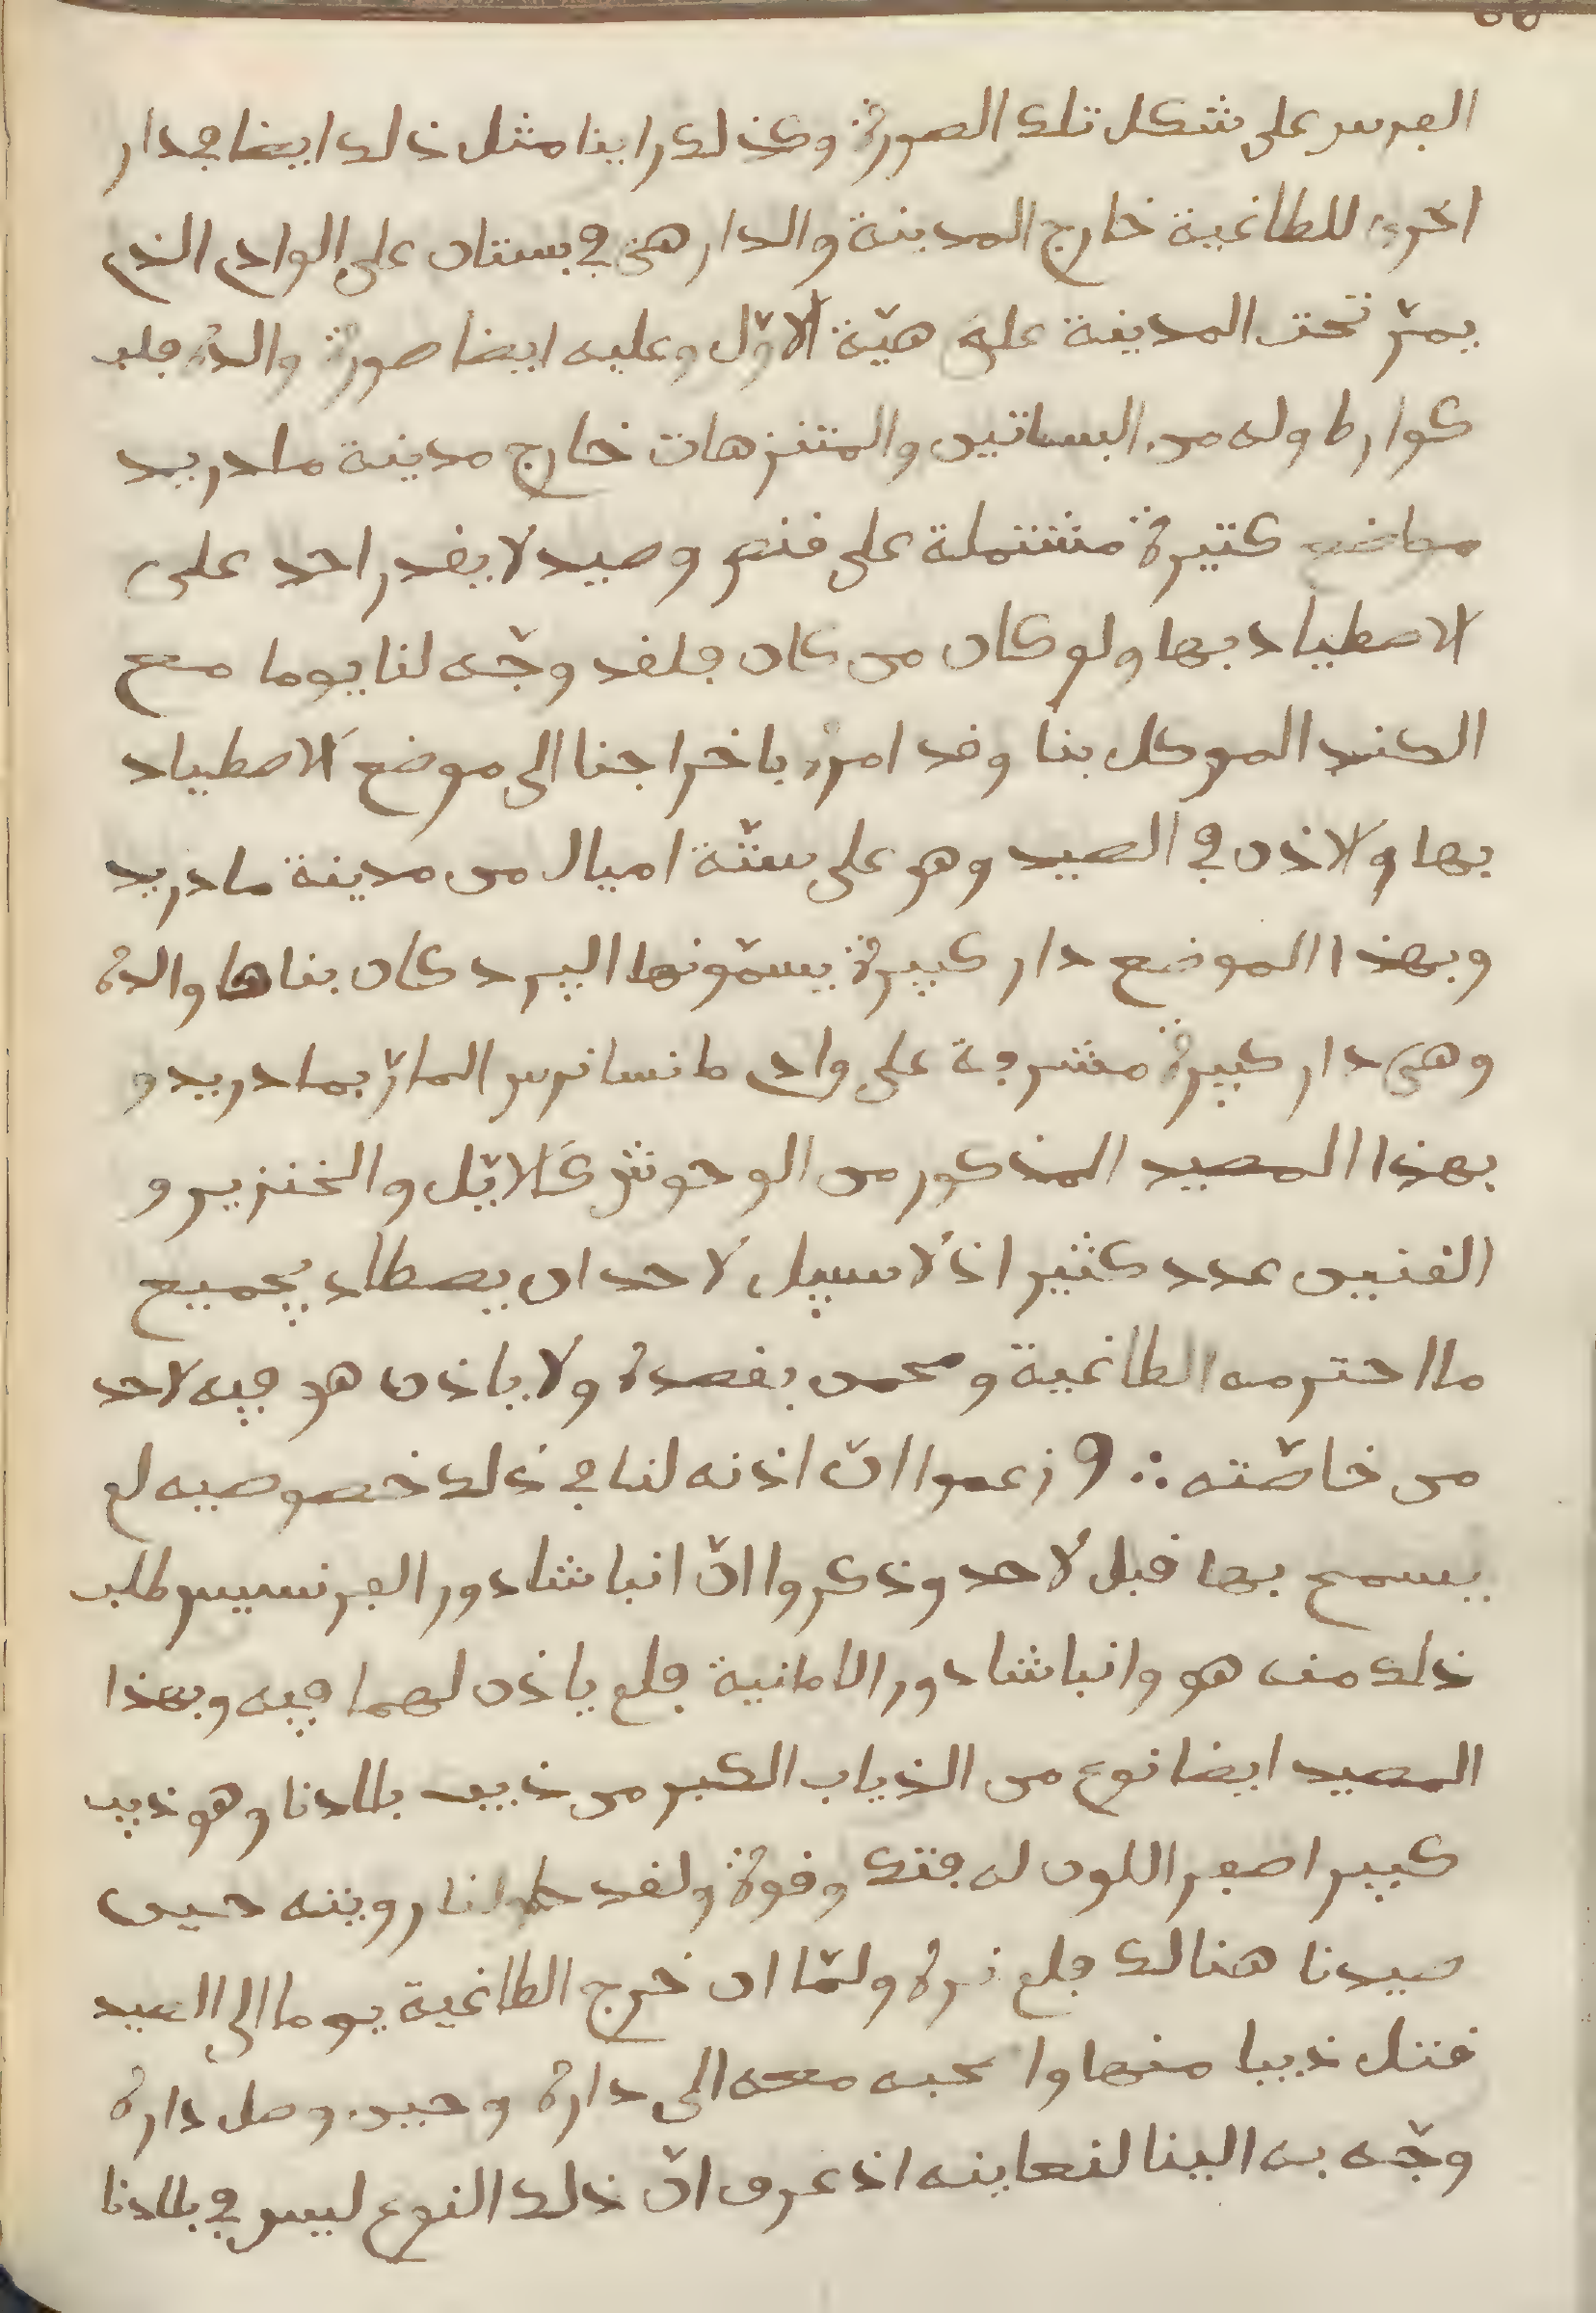 الفرس على شكل تلك الصورة وكذلك راينا مثل ذلك ايضا في دار
اخرى للطاغية خارج المدينة والدار هي في بستان على الوادي الذي
يمرّ تحت المدينة على هيّة الاوّل وعليه ايضا صورة والده فلب
كوارط وله من البساتين والمتنزهات خارج مدينة مادريد
مواضع كثيرة مشتملة على قنص وصيد لا يقدر احد على
الاصطياد بها ولو كان من كان فلقد وجّه لنا يوما مع
الكند الموكل بنا وقد امره باخراجنا الى موضع الاصطياد
بها والاذن في الصيد وهو على ستّة اميال من مدينة مادريد
وبهذا الموضع دار كبيرة يسمّونها البرد كان بناها والده
وهي دار كبيرة مشرفة على وادي مانسانرس المارّ بمادريد و
بهذا المصيد المذكور من الوحوش كالايّل والخنزير و
القنين عدد كثير اذ لا سبيل لاحد ان يصطاد بجميع
ما احترمه الطاغية و بقصده ولا ياذن هو فيه لاحد
من خاصّته ∴ وزعموا انّ اذنه لنا في ذلك خصوصيه لم
يسمح بها قبل لاحد وذكروا انّ انباشادور الفرنسيس طلب
ذلك منه هو وانباشادور الامانية فلم ياذن لهما فيه وبهذا
المصيد ايضا نوع من الذياب الكبر من ذيب بلادنا وهو ذيب
كبير اصفر اللون له فتك وقوة ولقد لنا رويته حين
صيدنا هنالك فلم نره ولمّا ان خرج الطاغية يوما الى الصيد
فقتل ذيبا منها وا صحبه معه الى داره وحين وصل داره
وجّه به الينا لنعاينه اذ عرف انّ ذلك النوع ليس في بلادنا